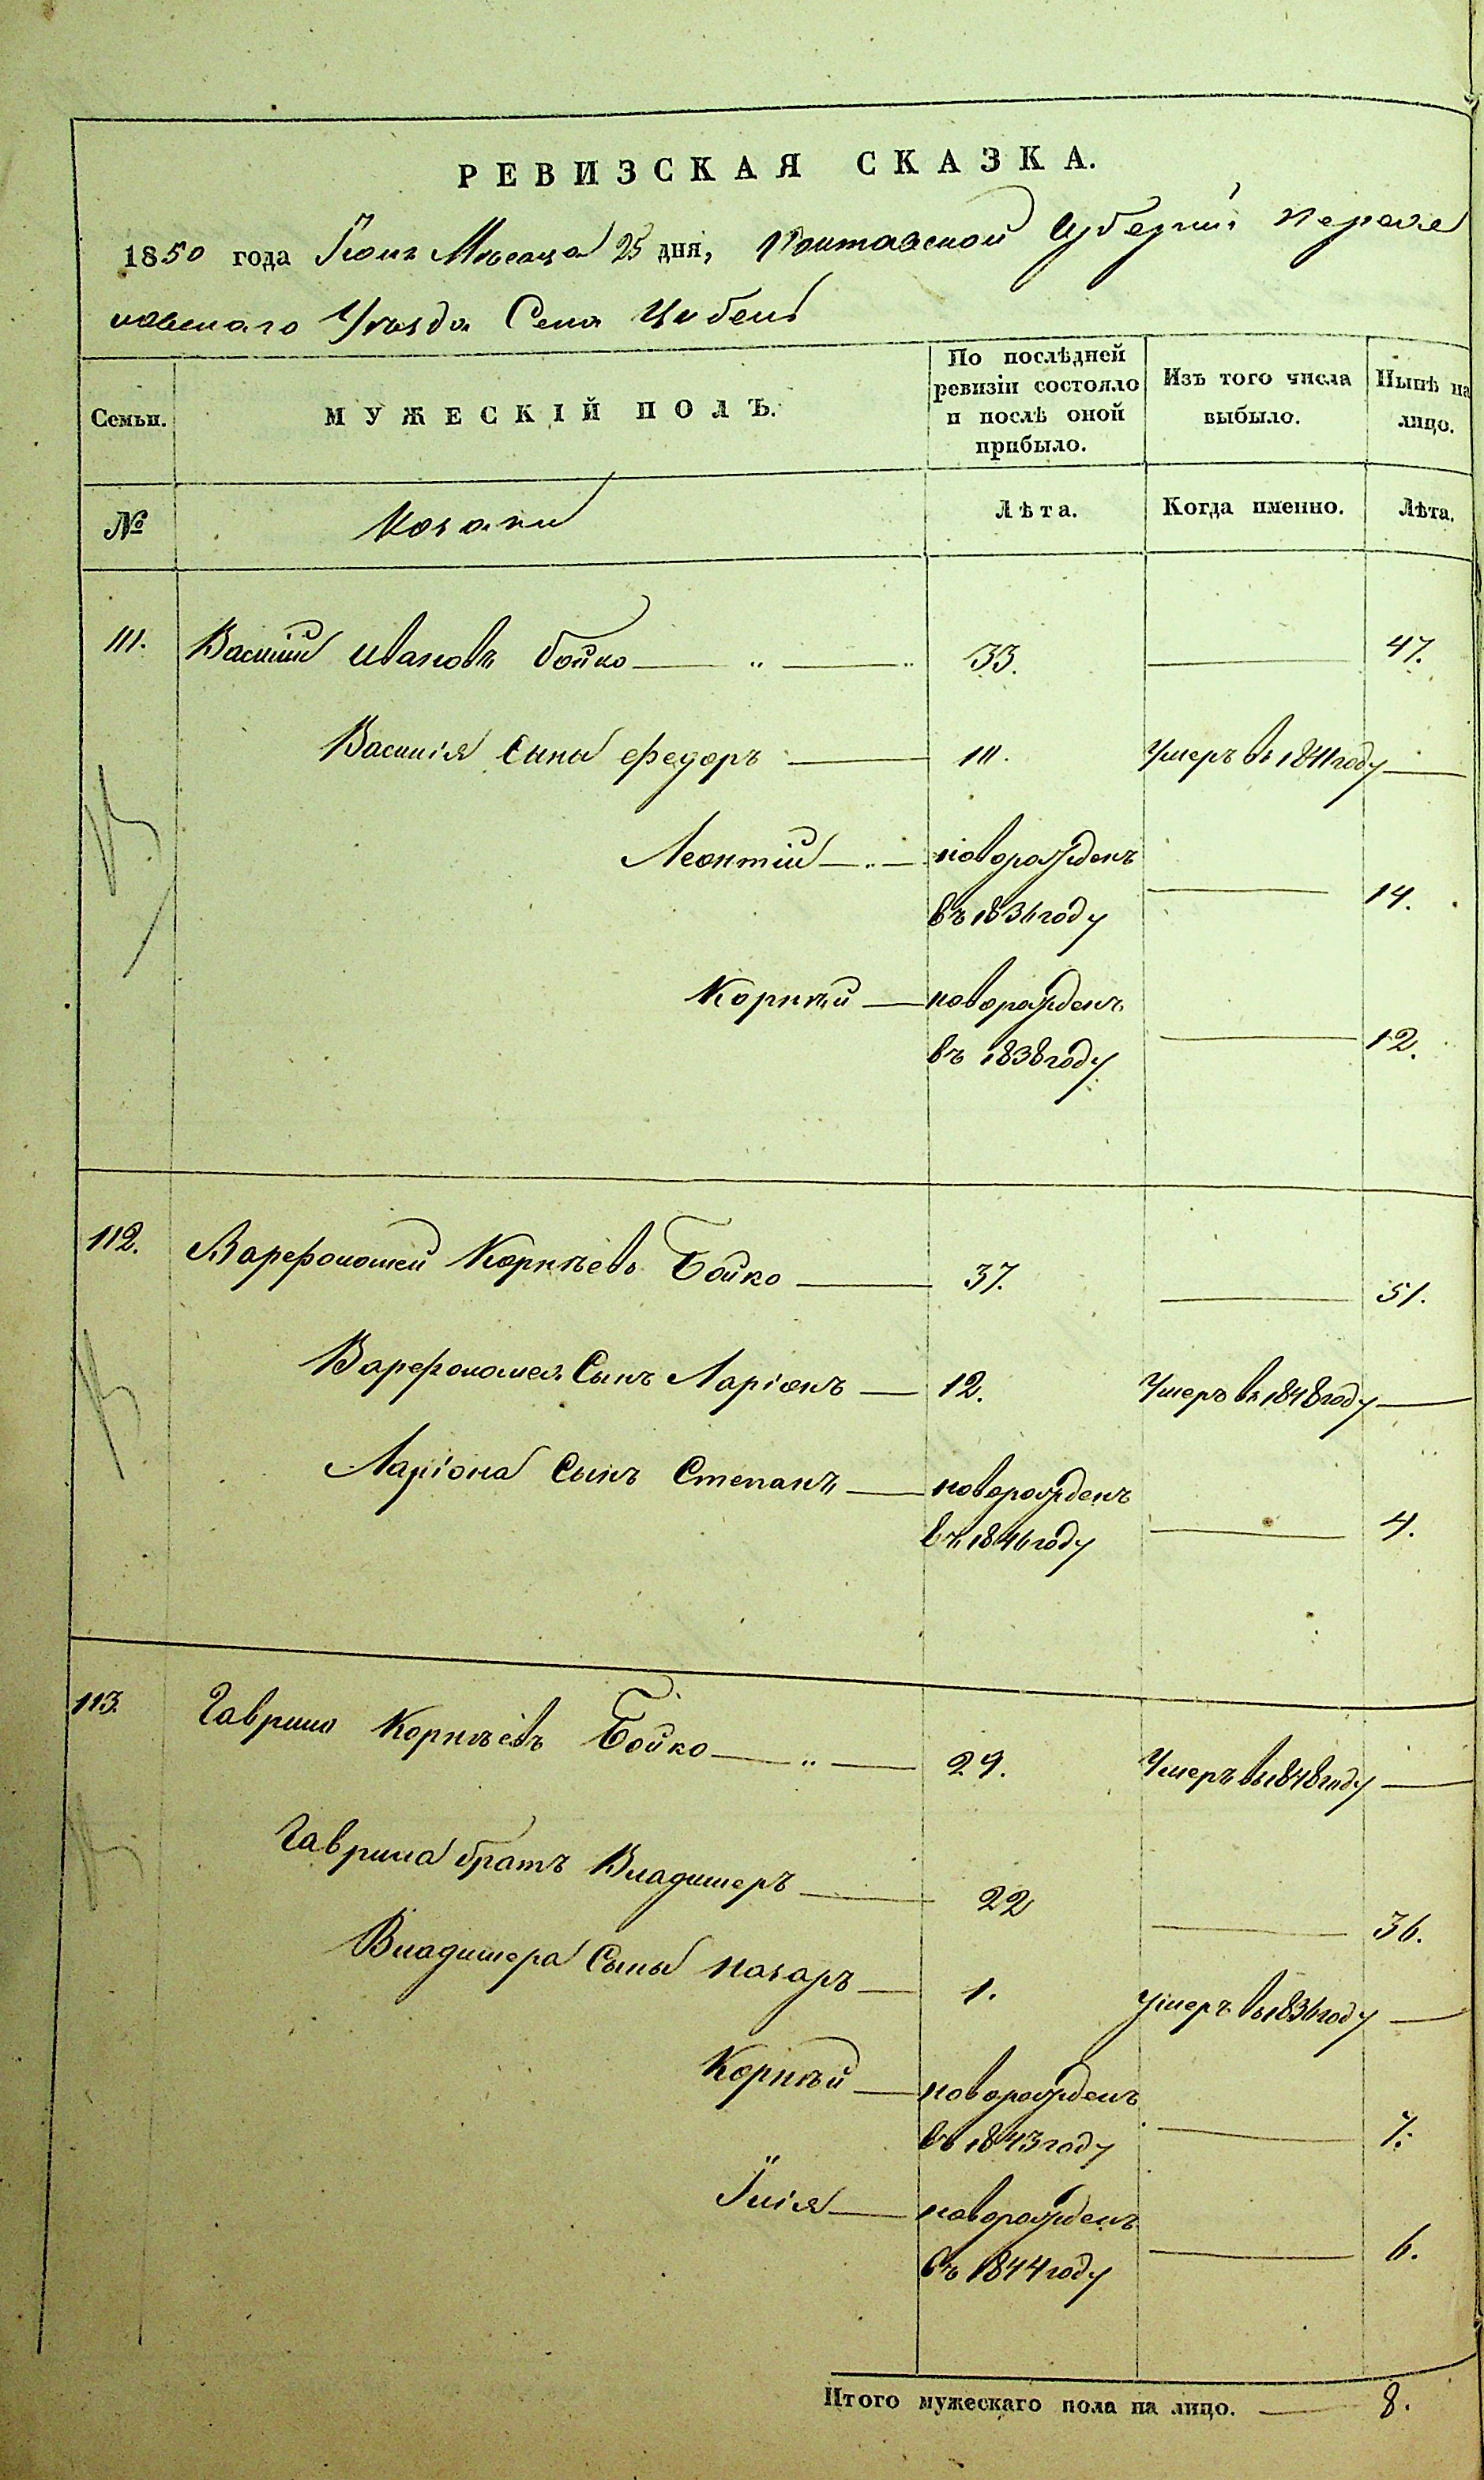 РЕВИЗСКАЯ СКАЗКА.
1850 года Іюнь Мѣсяца 25 дня, Полтавской Губерніи Перея
новскаго Уѣзда Села Цибель
Семьи. МУЖЕСКІЙ ПОЛЪ. По послѣдней ревизіи состояло и послѣ оной прибыло. Изъ того числа выбыло. Нынѣ на лицо.
№ Козаки Лѣта. Когда именно. Лѣта.
111. Василій Ивановъ Бойко 33. 47.
Василія Сыны Федоръ 10. Умеръ въ 1841 году
Леонтій новорожденъ
въ 1836 году 14.
Корнѣй новорожденъ
въ 1838 году 12.
112. Варфоломей Корнѣевъ Бойко 37. 51.
Варфоломея Сынъ Ларіонъ 12. Умеръ въ 1848 году
Ларіона Сынъ Степанъ новорожденъ
въ 1846 году 4.
113. Гаврило Корнѣевъ Бойко 29. Умеръ въ 1848 году
Гаврила братъ Владимеръ 22 36.
Владимера Сыны Назаръ 1. Умеръ въ 1836 году
Корнѣй новорожденъ
въ 1843 году 7.
Илія новорожденъ
въ 1844 году 6.
Итого мужескаго пола на лицо. 8.